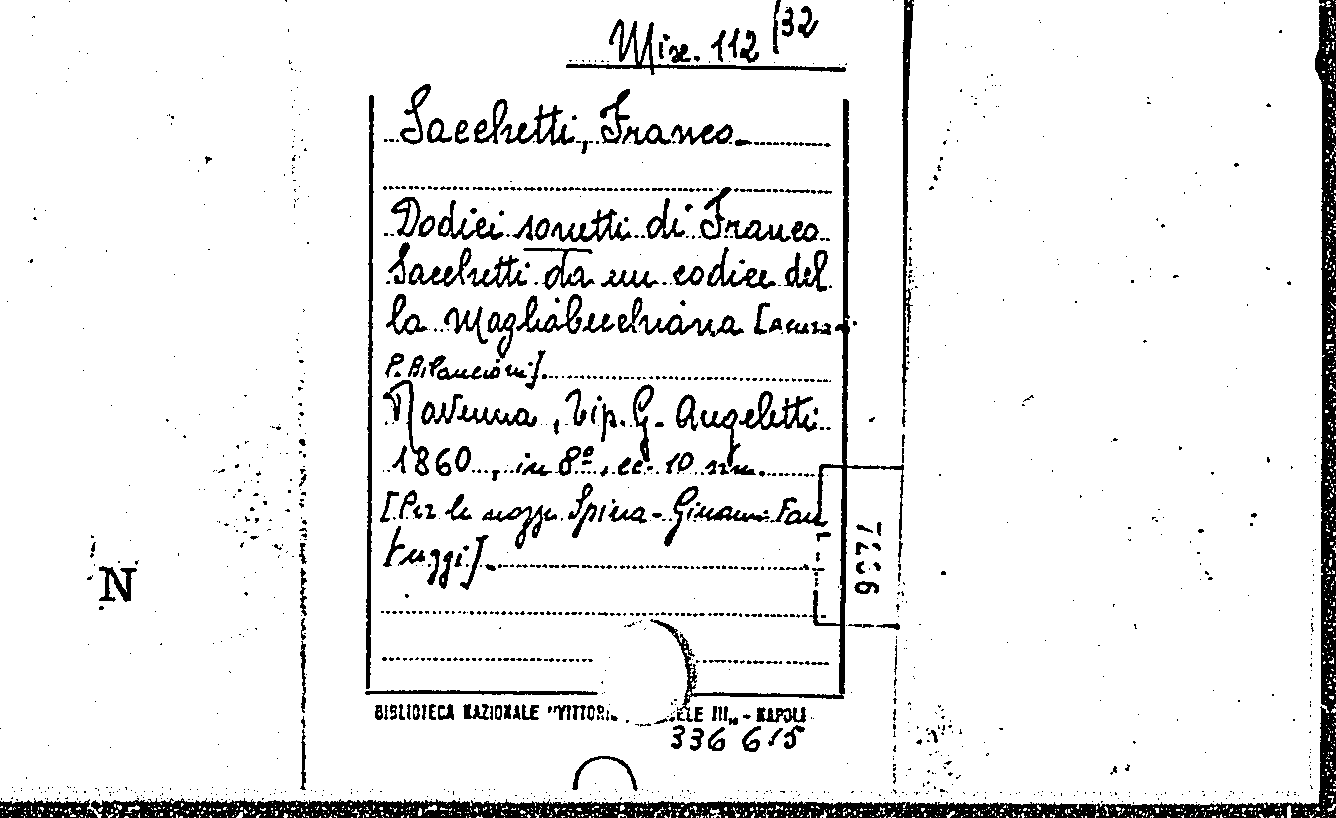 Misc. 112/32
Sacchetti, Franco.
Dodici sonetti di Franco
Sacchetti da un codice del
la Magliabechiana [A cura di
P. Bilancioni].
Ravenna, Tip. G. Angeletti
1860, in 8º, cc. 10 nn.
[Per le nozze Spina-Ginanni Fan
tuzzi].
7236
N
BIBLIOTECA NAZIONALE "VITTORI ELE III„ - NAPOLI
336 615